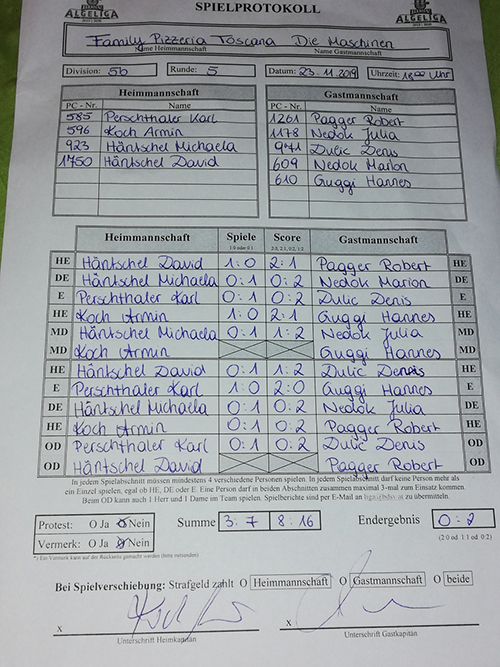 ALGELIGA SPIELPROTOKOLL ALGELIGA
Family Pizzeria Toscana Die Maschinen
Name Heimmannschaft Name Gastmannschaft
Division: 5b Runde: 5 Datum: 23.11.2019 Uhrzeit: 18:00 Uhr
Heimmannschaft Gastmannschaft
PC - Nr. Name PC - Nr. Name
585 Perschthaler Karl 1261 Pagger Robert
596 Koch Armin 1178 Nedok Julia
923 Häntschel Michaela 971 Dulic Denis
1750 Häntschel David 609 Nedok Marion
610 Guggi Hannes
Heimmannschaft Spiele Score Gastmannschaft
1:0 oder 0:1 2:0, 2:1, 0:2, 1:2
HE Häntschel David 1:0 2:1 Pagger Robert HE
DE Häntschel Michaela 0:1 0:2 Nedok Marion DE
E Perschthaler Karl 0:1 0:2 Dulic Denis E
HE Koch Armin 1:0 2:1 Guggi Hannes HE
MD Häntschel Michaela 0:1 1:2 Nedok Julia MD
MD Koch Armin Guggi Hannes MD
HE Häntschel David 0:1 1:2 Dulic Denis HE
E Perschthaler Karl 1:0 2:0 Guggi Hannes E
DE Häntschel Michaela 0:1 0:2 Nedok Julia DE
HE Koch Armin 0:1 0:2 Pagger Robert HE
OD Perschthaler Karl 0:1 0:2 Dulic Denis OD
OD Häntschel David Pagger Robert OD
In jedem Spielabschnitt müssen mindestens 4 verschiedene Personen spielen. In jedem Spielabschnitt darf keine Person mehr als
ein Einzel spielen, egal ob HE, DE oder E. Eine Person darf in beiden Abschnitten zusammen maximal 3-mal zum Einsatz kommen.
Beim OD kann auch 1 Herr und 1 Dame im Team spielen. Spielberichte sind per E-Mail an zu übermitteln.
Protest: O Ja O Nein Summe 3:7 8:16 Endergebnis 0:2
Vermerk: O Ja O Nein (2:0 od. 1:1 od. 0:2)
*) Ein Vermerk kann auf der Rückseite gemacht werden (bitte wenden)
Bei Spielverschiebung: Strafgeld zahlt O Heimmannschaft O Gastmannschaft O beide
x x
Unterschrift Heimkapitän Unterschrift Gastkapitän